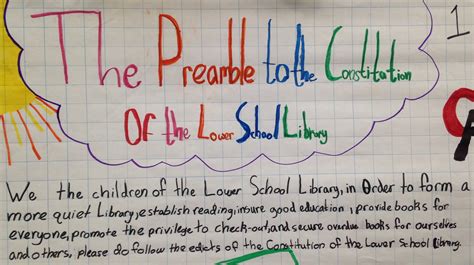 1
The Preamble to the Constitution
Of the Lower School Library
We the children of the Lower School Library, in Order to form a
more quiet Library, establish reading, insure good education, provide books for
everyone, promote the privilege to check-out, and secure overdue books for ourselves
and others, please do follow the edicts of the Constitution of the Lower School Library.